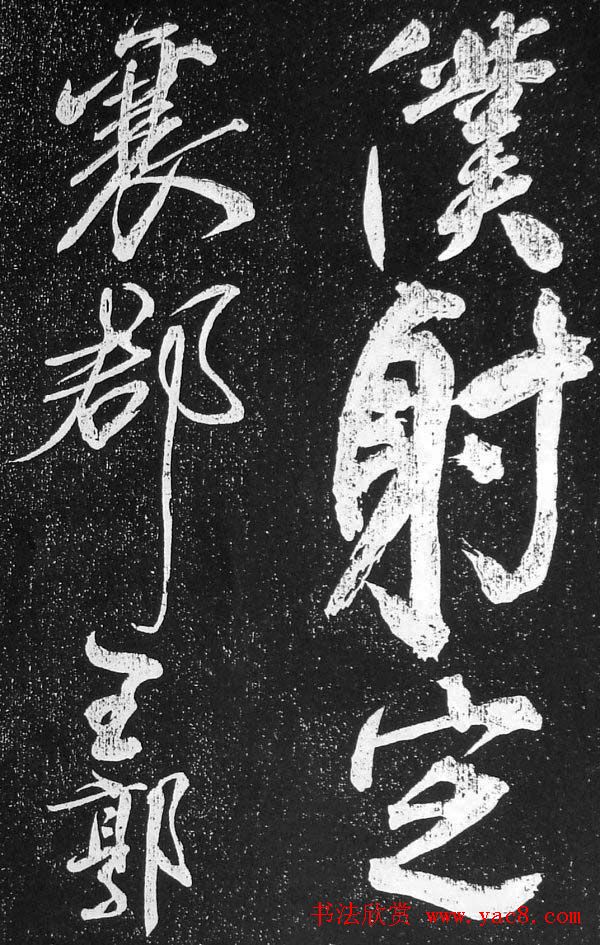 僕射定
襄郡王郭
书法欣赏 www.yac8.com